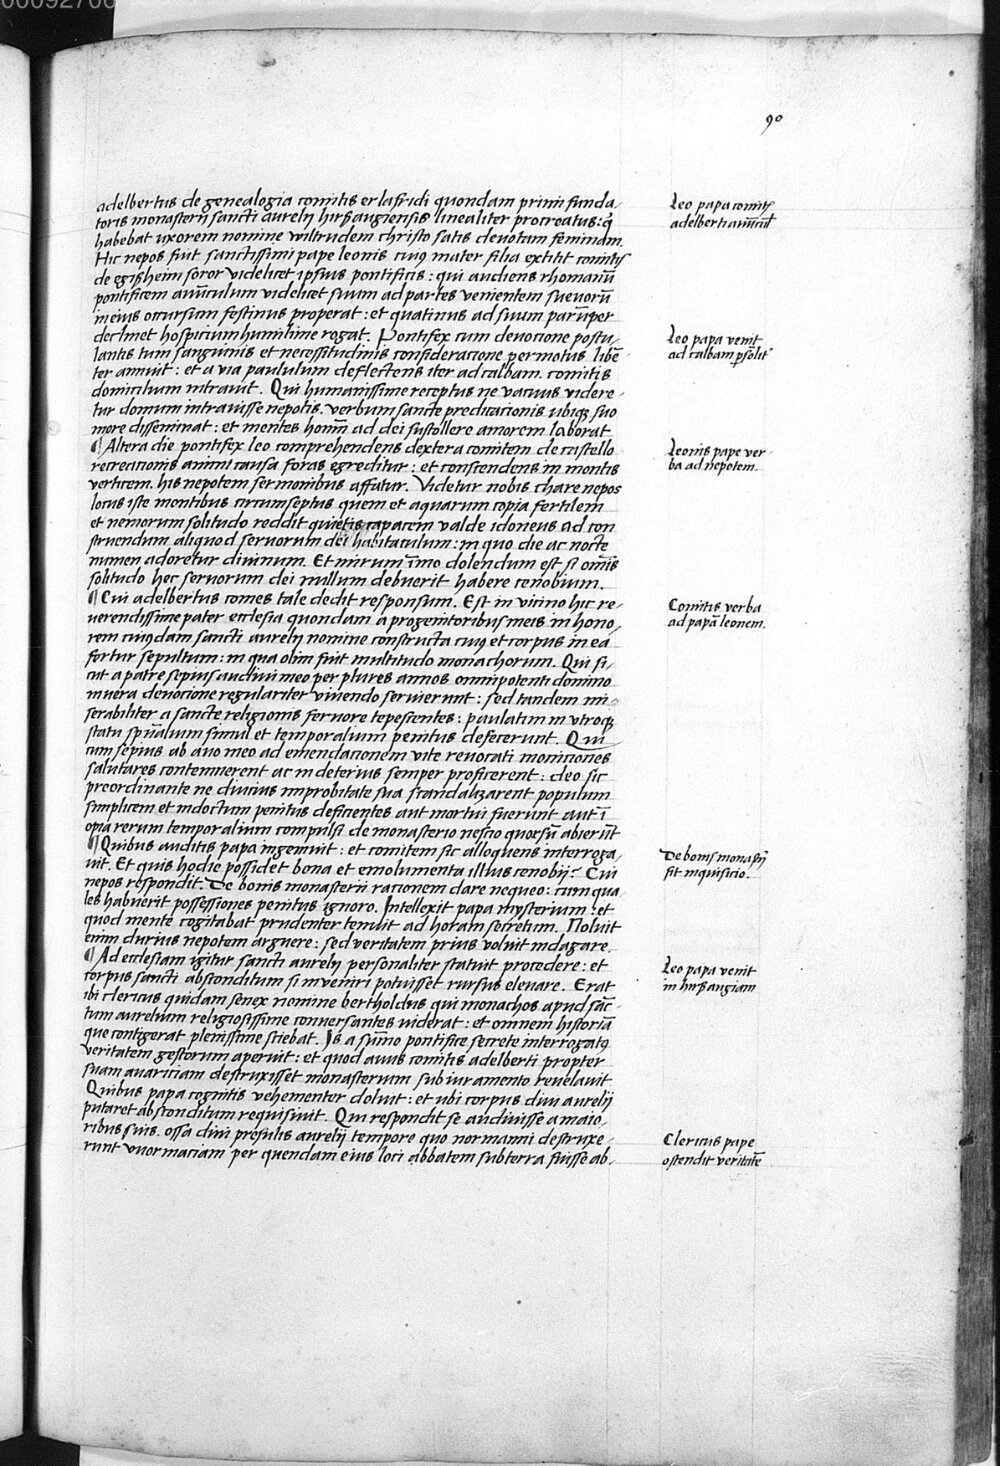 90
adelbertus de genealogia comitis erlafridi quondam primi funda,
toris monasterij sancti aurelij hirßaugiensis linealiter procreatus: q̇
habebat uxorem nomine wiltrudem christo satis deuotam feminam.
Hic nepos fuit sanctissimi pape leonis cuiꝯ mater filia extitit comitis
de egißheim soror videlicet ipsius pontificis: qui audiens rhomanū
pontificem auūculum videlicet suum ad partes venientem sueuorū
in eius occursum festinus properat: et quatinus ad suum parūper
declinet hospicium humilime rogat. Pontifex cum deuocione postu,
lantis tum sanguinis et necessitudinis consideracione permotus libē
ter annuit: et a via paululum deflectens iter ad calbam. comitis
domicilium intrauit. Qui humanissime receptus ne vacuus videre,
tur domum intrauisse nepotis. verbum sancte predicacionis ubiqꝫ suo
more disseminat: et mentes hoīm ad dei sustollere amorem laborat.
¶ Altera die pontifex leo comprehendens dextera comitem de castello
recreacionis animi causa foras egreditur: et conscendens in montis
verticem. his nepotem sermonibus affatur. Videtur nobis chare nepos
locus iste montibus circumseptus quem et aquarum copia fertilem
et nemorum solitudo reddit quietis capacem valde idoneus ad con
struendum aliquod seruorum dei habitaculum: in quo die ac nocte
numen adoretur diuinum. Et mirum īmo dolendum est si om̄is
solitudo hec seruorum dei nullum debuerit habere cenobium.
¶ Cui adelbertus comes tale dedit responsum. Est in vicino hic re,
uerendissime pater ecclesia quondam a progenitoribus meis in hono,
rem cuiꝯdam sancti aurelij nomine constructa cuiꝯ et corpus in ea
fertur sepultum: in qua olim fuit multitudo monachorum. Qui si,
cut a patre sepius audiui meo per plures annos omnipotenti domino
in uera deuocione regulariter viuendo seruierunt: sed tandem mi,
serabiliter a sancte religionis feruore tepescentes: paulatim in vtroqꝫ
statu sp̄ualium simul et temporalium penitus defecerunt. Qui
cum sepius ab auo meo ad emendacionem vite reuocati moniciones
salutares contemnerent ac in deterius semper proficerent: deo sic
preordinante ne diucius improbitate sua scandalizarent populum
simplicem et indoctum penitus deficientes aut mortui fuerunt aut ī
opia rerum temporalium compulsi de monasterio nescio quorsū abierūt
¶ Quibus auditis papa ingemuit: et comitem sic alloquens interroga,
uit. Et quis hodie possidet bona et emolumenta illius cenobij? Cui
nepos respondit. De bonis monasterii racionem dare nequeo: cum qua
les habuerit possessiones penitus ignoro. Intellexit papa mysterium: et
quod mente cogitabat prudenter tenuit ad horam secretum. Noluit
enim durius nepotem arguere: sed veritatem prius voluit indagare.
¶ Ad ecclesiam igitur sancti aurelij personaliter statuit procedere: et
corpus sancti absconditum si inueniri potuisset rursus eleuare. Erat
ibi clericus quidam senex nomine bertholdus qui monachos apud sāc
tum aurelium religiosissime conuersantes viderat: et omnem historiā
que contigerat plenissime sciebat. Is a sūmo pontifice secrete interrogatꝯ
veritatem gestorum aperuit: et quod auus comitis adelberti propter
suam auariciam destruxisset monasterium sub iuramento reuelauit
Quibus papa cognitis vehementer doluit: et ubi corpus diui aurelij
putaret absconditum requisiuit. Qui respondit se audiuisse a maio,
ribus suis. ossa diui presulis aurelij tempore quo normanni destruxe,
runt vuormaciam per quendam eius loci abbatem sub terra fuisse ab,
Leo papa comitꝭ
adelberti auūcul'
Leo papa venit
ad calbam p̱solit'
Leonis pape ver-
ba ad nepotem.
Comitis verba
ad papā leonem.
De bonis monastij
fit inquisicio.
Leo papa venit
in hirßaugiam
Clericus pape
ostendit veritatē